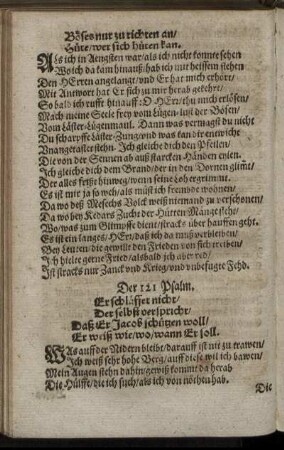 Böses nur zu richten an/
Hüte/wer sich hüten kan.
ALs ich in Aengsten war/als ich nicht konnte sehen
Wo ich da kam hinauß/hab ich mit heissem stehen
Den HErren angelangt/und Er hat mich erhört/
Mit Antwort hat Er sich zu mir herab gekehrt/
So bald ich rufft hinauff: O HErr/thu mich erlösen/
Mach meine Seele frey vom Lügen-lust der Bösen/
Vom Läster-Lügenmaul. Dann was vermagst du nicht
Du scharpffe Läster-Zung/und was kan dir entwicht
Du scharpffe
Die von der Sennen ab auß starcken Händen eylen.
Ich gleiche dich dem Brand/der in den Dornen glimt/
Der alles frißt hinweg/wenn seine Loh ergrimmt.
Es ist mir ja so weh/als müst ich frembde wohnen/
Da wo deß Mesechs Volck weiß niemand zu verschonen/
Da wo bey Kedars Zucht der Hütten Mänge steht/
Wo/was zum Glimpffe dient/stracks über hauffen geht.
Es ist ein langes/HErr/daß ich da muß verbleiben/
Bey Leuten/die gewillt den Frieden von sich treiben/
Ich hielte gerne Fried/alsbald ich aber red/
Ist stracks nur Zanck und Krieg/und unbefugte Fehd.
Der 121 Psalm.
Er schläffet nicht/
Der selbst verspricht/
Daß Er Jacob schützen woll/
Er weiß wie/wo/wann Er soll.
WAs auff der Nidern bleibt/darauff ist nit zu trawen/
Ich weiß sehr hohe Berg/auff diese wil ich bawen/
Mein Augen stehn dahin/gewiß kommt da herab
Die Hülffe/die ich such/als ich von nöthen hab.
Die